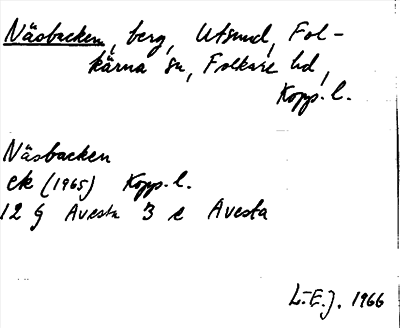 Näsbacken, berg, Utsund, Fol-
kärna sn, Folkare hd,
Kopp. l.
Näsbacken
ek (1965) Kopp. l.
12 G Avesta 3 e Avesta
L-E.J. 1966